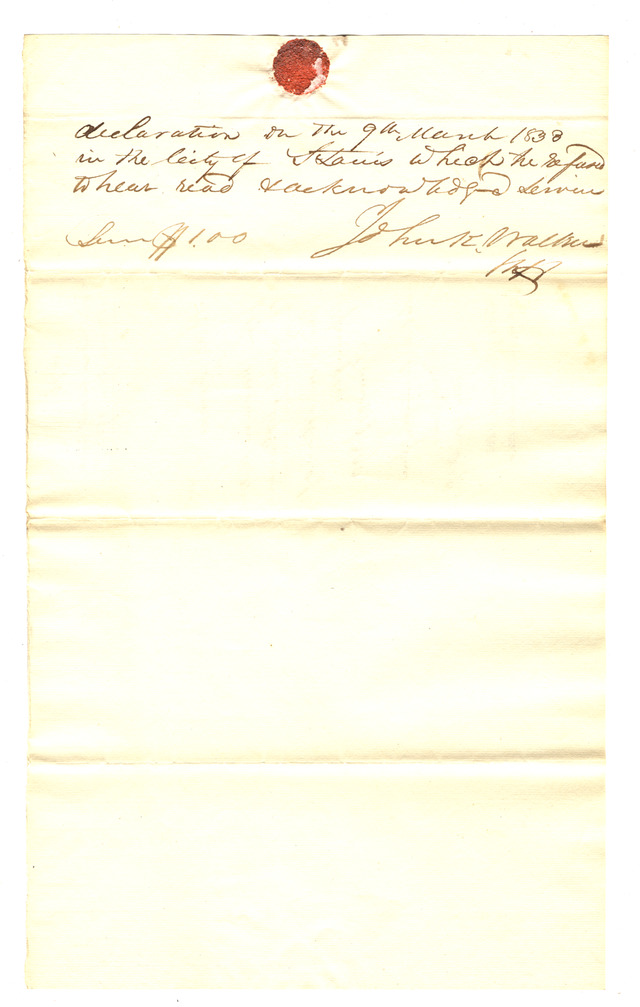 declaration on the 9th March 1833
in the City of St Louis which he refused
to hear read & acknowledged Service
Serv $1.00 John K. Walker